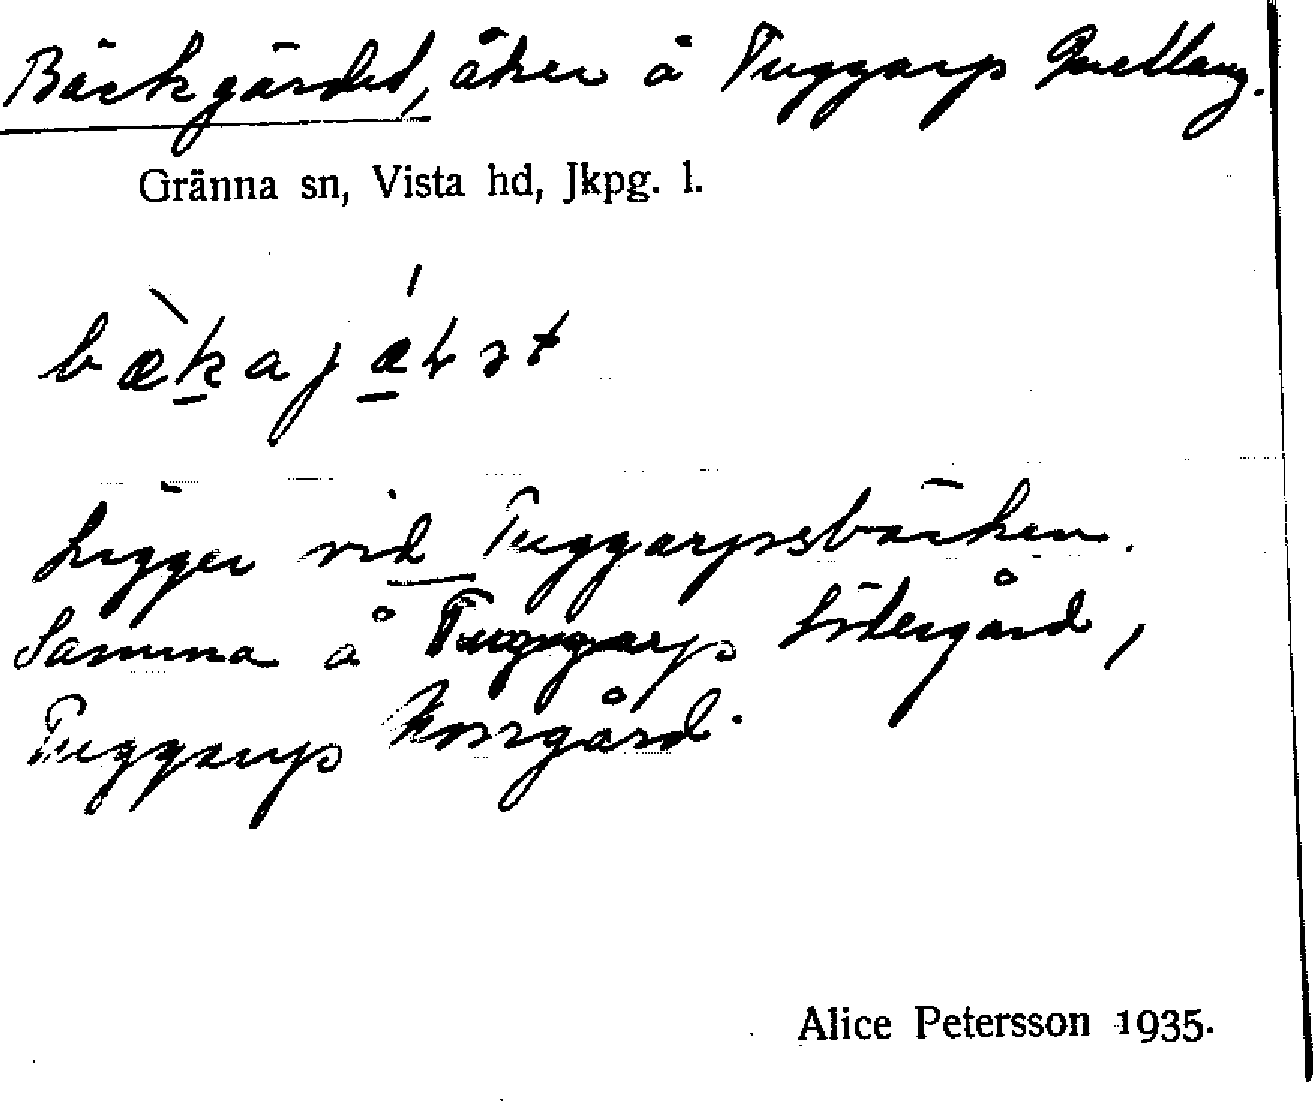 Bäckgärdet, åker å Tuggarp Mellang.
Gränna sn, Vista hd, Jkpg. l.
Ligger vid Tuggarpsbäcken.
Samma å Tuggarp Södergård,
Tuggarp Norrgård.
Alice Petersson 1935.